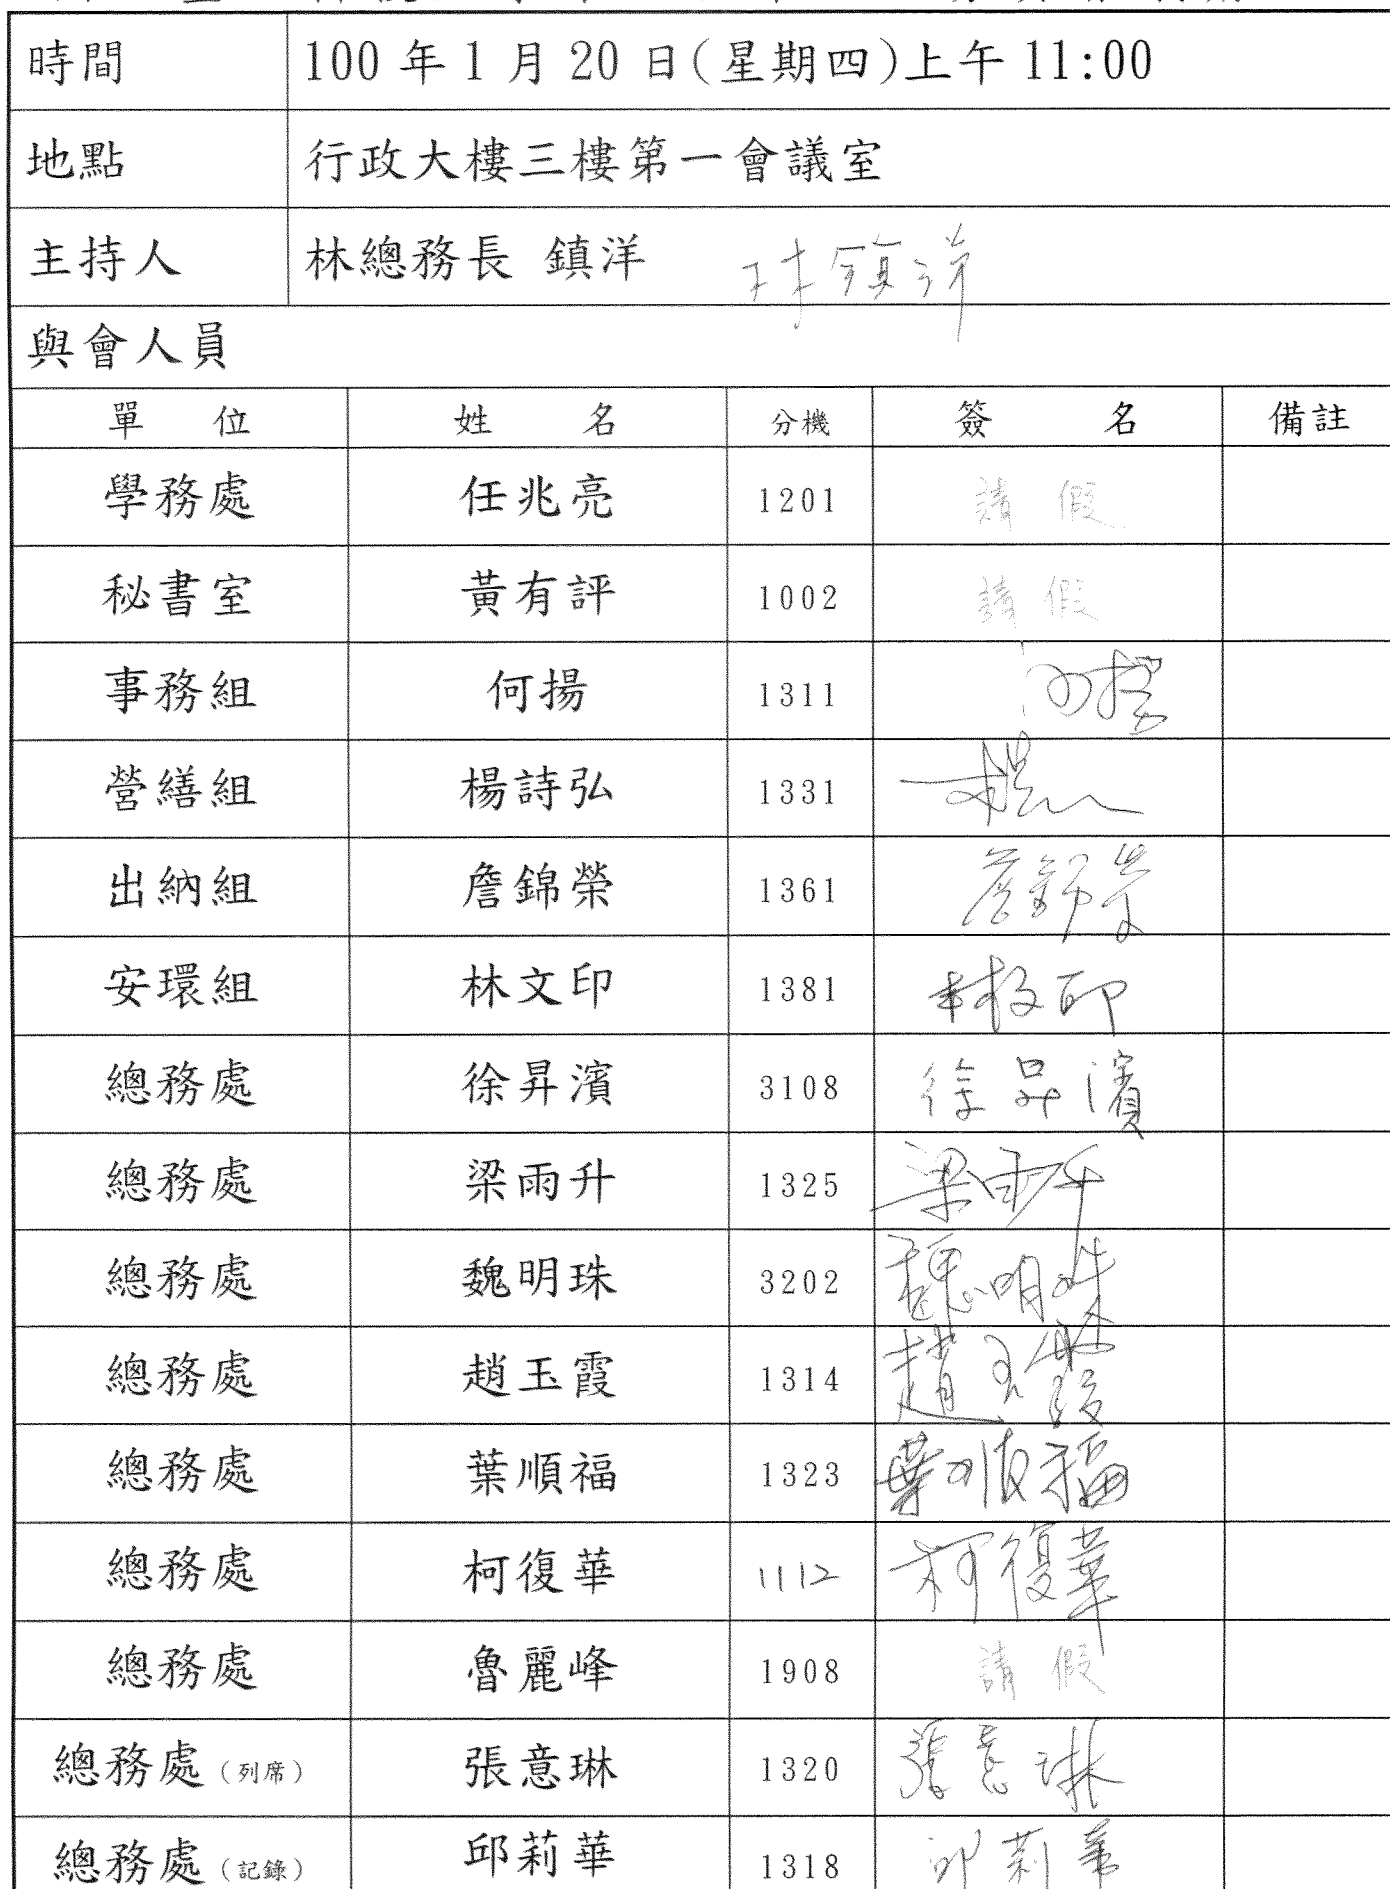 時間 100 年 1 月 20 日(星期四)上午 11:00
地點 行政大樓三樓第一會議室
主持人 林總務長 鎮洋 林鎮洋
與會人員
單 位 姓 名 分機 簽 名 備註
學務處 任兆亮 1201 請假
秘書室 黃有評 1002 請假
事務組 何揚 1311 何揚
營繕組 楊詩弘 1331
出納組 詹錦榮 1361 詹錦榮
安環組 林文印 1381 林文印
總務處 徐昇濱 3108 徐昇濱
總務處 梁雨升 1325 梁雨升
總務處 魏明珠 3202 魏明珠
總務處 趙玉霞 1314 趙玉霞
總務處 葉順福 1323 葉順福
總務處 柯復華 1112 柯復華
總務處 魯麗峰 1908 請假
總務處(列席) 張意琳 1320 張意琳
總務處(記錄) 邱莉華 1318 邱莉華